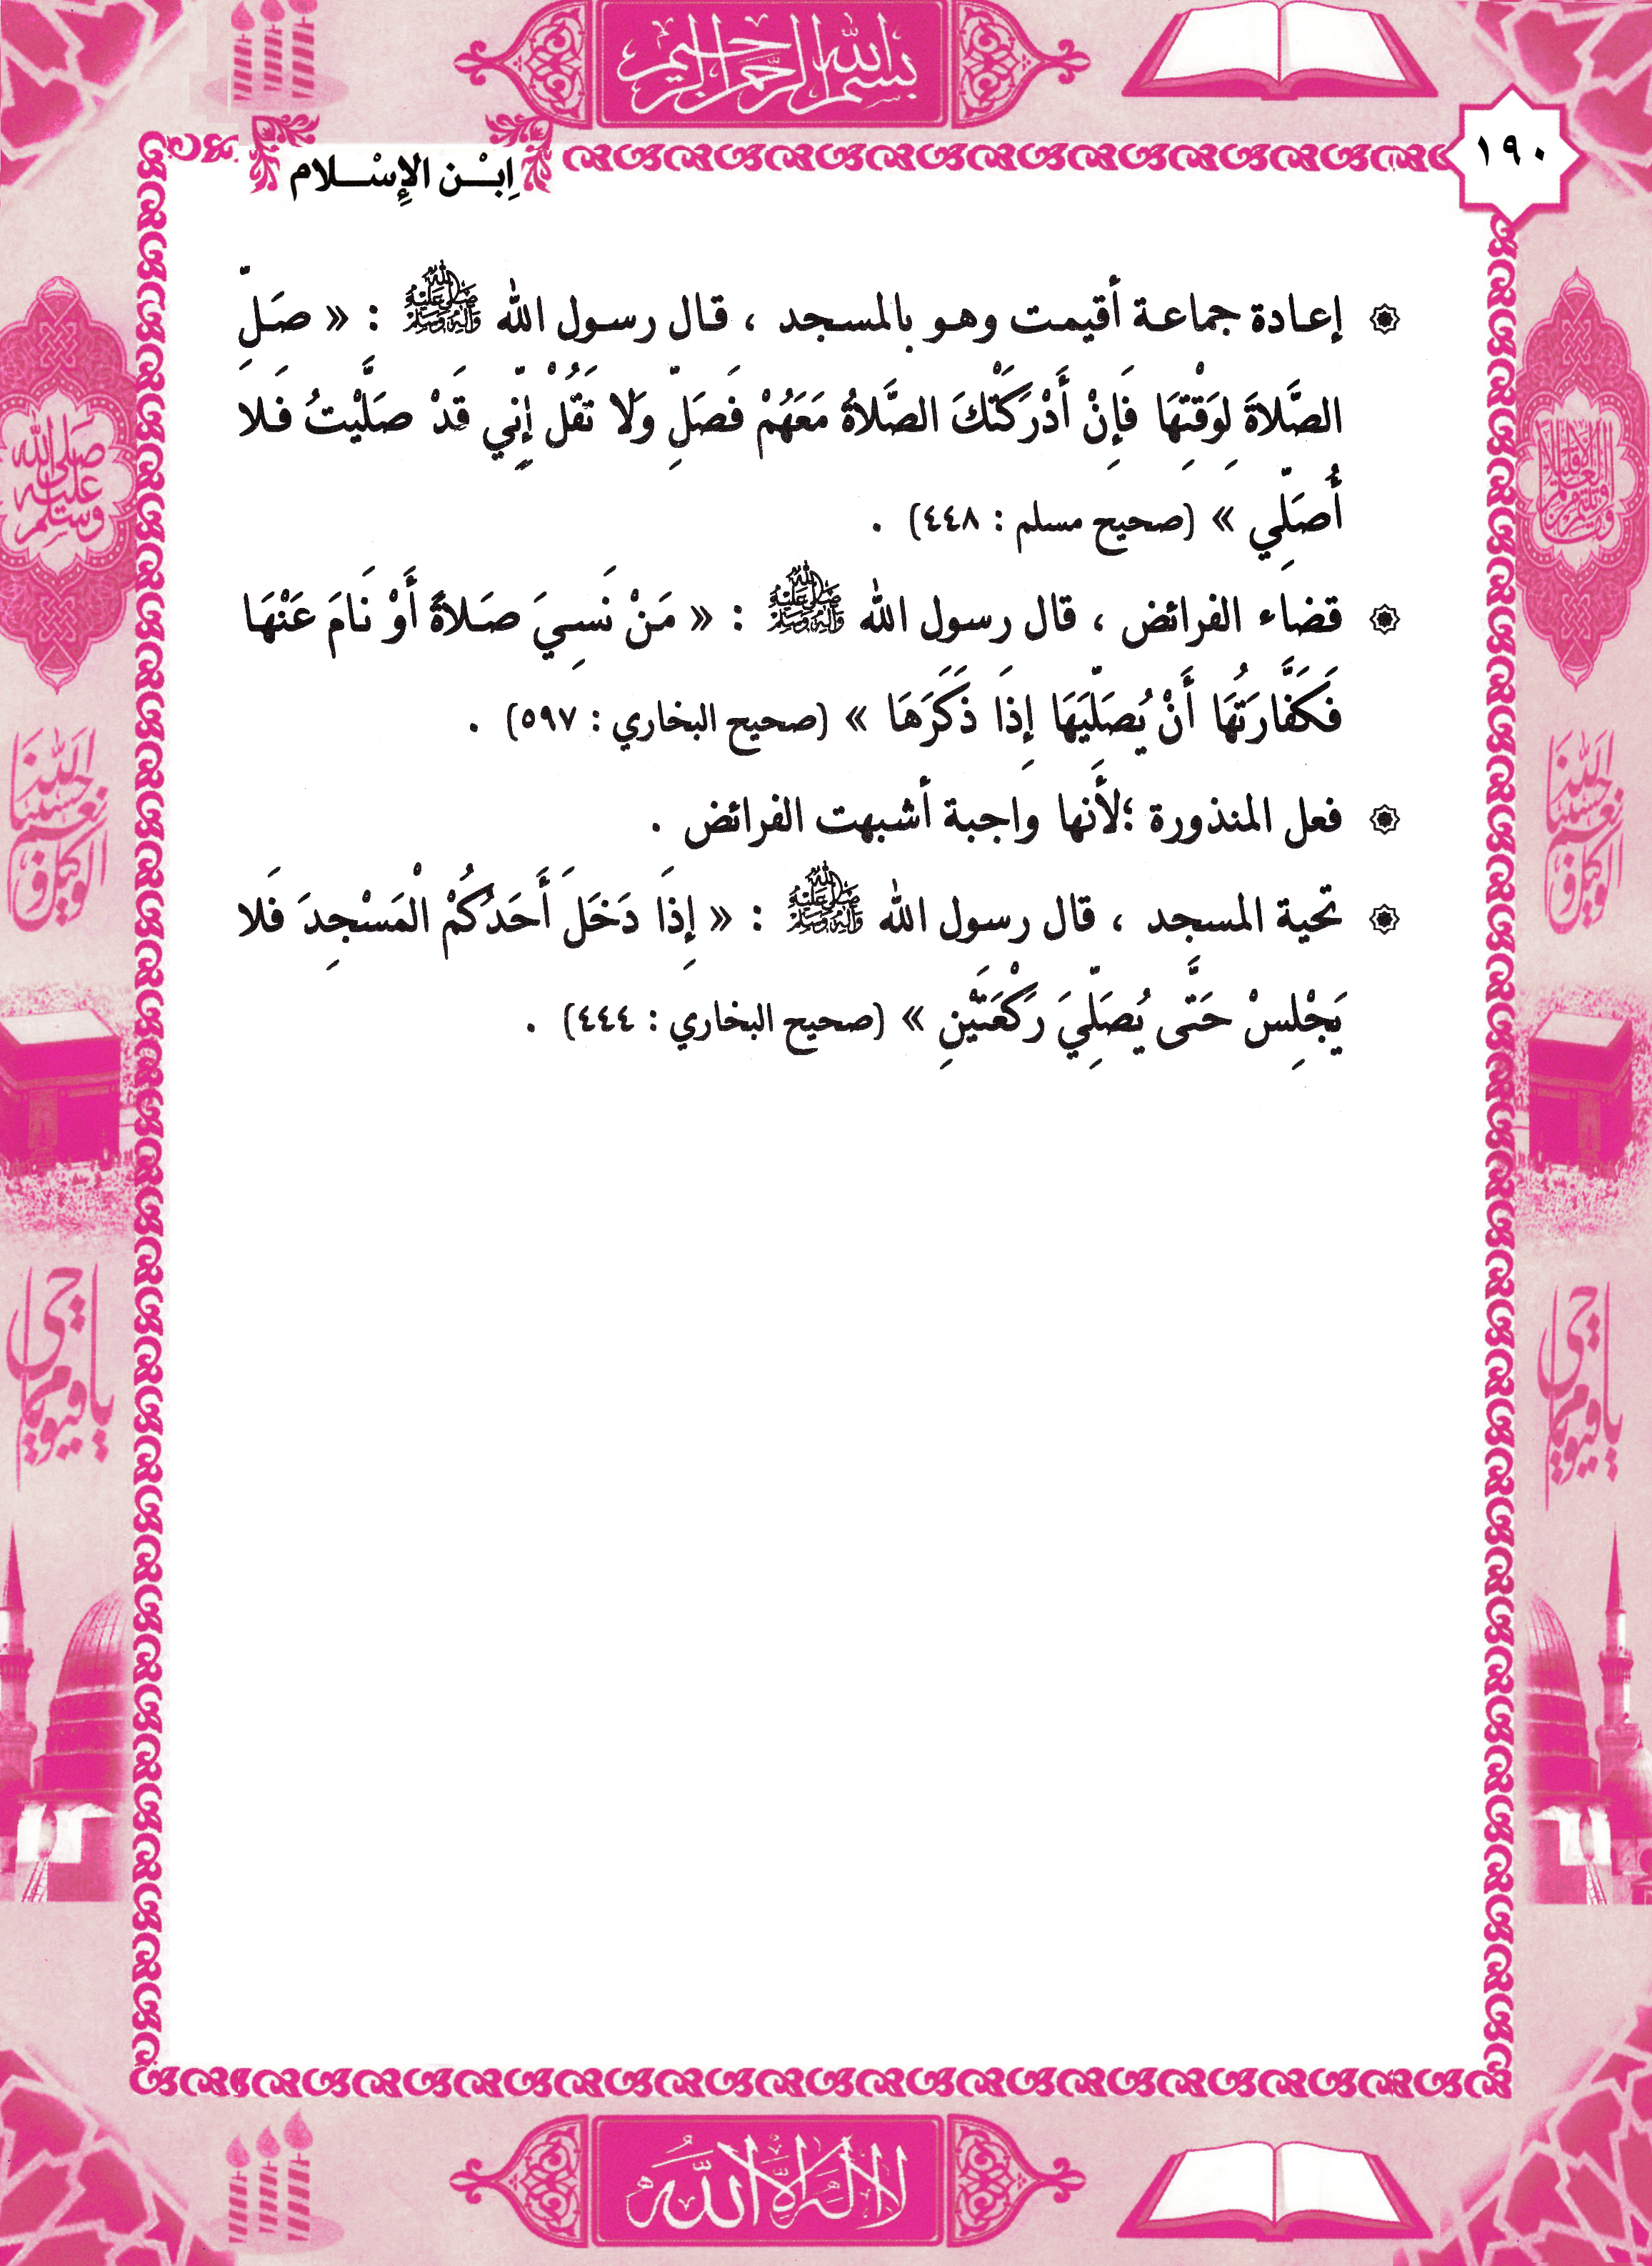 بسم الله الرحمن الرحيم
١٩٠
اِبْـن الإِسْـلام
إعادة جماعة أقيمت وهو بالمسجد ، قال رسول الله صلى الله عليه وآله وسلم : « صَلِّ
الصَّلاةَ لِوَقْتِهَا فَإِنْ أَدْرَكَتْكَ الصَّلاةُ مَعَهُمْ فَصَلِّ وَلا تَقُلْ إِنِّي قَدْ صَلَّيْتُ فَلا
أُصَلِّي » (صحيح مسلم : ٤٤٨) .
قضاء الفرائض ، قال رسول الله صلى الله عليه وآله وسلم : « مَنْ نَسِيَ صَلاةً أَوْ نَامَ عَنْهَا
فَكَفَّارَتُهَا أَنْ يُصَلِّيَهَا إِذَا ذَكَرَهَا » (صحيح البخاري : ٥٩٧) .
فعل المنذورة ؛لأنها واجبة أشبهت الفرائض .
تحية المسجد ، قال رسول الله صلى الله عليه وآله وسلم : « إِذَا دَخَلَ أَحَدُكُمْ الْمَسْجِدَ فَلا
يَجْلِسْ حَتَّى يُصَلِّيَ رَكْعَتَيْنِ » (صحيح البخاري : ٤٤٤) .
صلى الله عليه وسلم
حسبنا الله ونعم الوكيل
حسبنا الله ونعم الوكيل
يا حي يا قيوم
يا حي يا قيوم
لا إله إلا الله